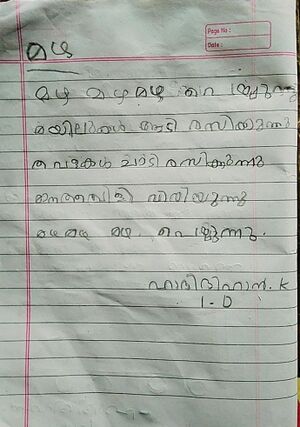 മഴ
Page No :
Date :
മഴ മഴ മഴ പെയ്യുന്നു
മയിലുകൾ ആടി രസിക്കുന്നു
തവളകൾ ചാടി രസിക്കുന്നു
വിരിയുന്നു
മഴ മഴ മഴ പെയ്യുന്നു.
K
1-D